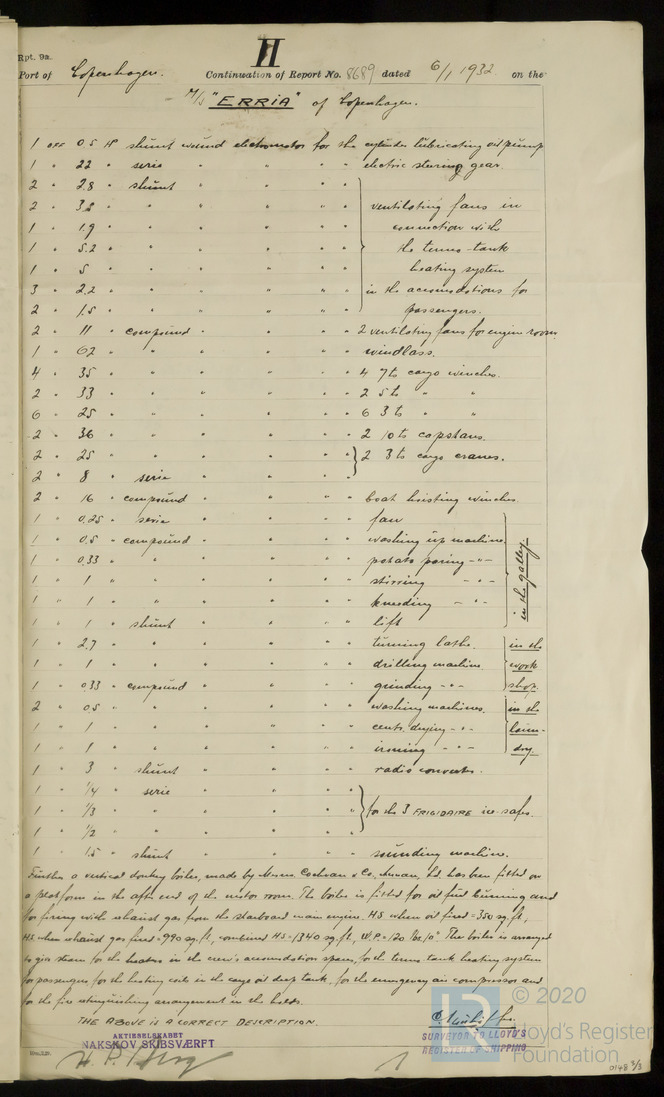 Rpt. 9a.
II
Port of Copenhagen. Continuation of Report No. 8689 dated 6/1 1932 on the
M/S "ERRIA" of Copenhagen.
1 off 0.5 HP shunt wound electromotor for the cylinder lubricating oil pump
1 " 22 " serie " " " " electric steering gear
2 " 2.8 " shunt " " " "
2 " 3.2 " " " " " " ventilating fans in
1 " 1.9 " " " " " " connection with
1 " 5.2 " " " " " " the termo-tank
1 " 5 " " " " " " heating system
3 " 2.2 " " " " " " in the accomodations for
2 " 1.5 " " " " " " passengers.
2 " 11 " compound " " " " 2 ventilating fans for engine room
1 " 62 " " " " " " windlass.
4 " 35 " " " " " " 4 7 ts cargo winches.
2 " 33 " " " " " " 2 5 ts " "
6 " 25 " " " " " " 6 3 ts " "
2 " 36 " " " " " " 2 10 ts capstans.
2 " 25 " " " " " " 2 3 ts cargo cranes.
2 " 8 " serie " " " "
2 " 16 " compound " " " " boat hoisting winches
1 " 0.25 " serie " " " " fan
1 " 0.5 " compound " " " " washing up machine
1 " 0.33 " " " " " " potato paring -"-
1 " 1 " " " " " " stirring -"-
1 " 1 " " " " " " kneeding -"-
1 " 1 " shunt " " " " lift
in the galley
1 " 2.7 " " " " " " turning lathe.
1 " 1 " " " " " " drilling machine.
1 " 0.33 " compound " " " " grinding -"-
in the
work
shop.
2 " 0.5 " " " " " " washing machines.
1 " 1 " " " " " " centr. drying -"-
1 " 1 " " " " " " ironing -"-
in the
laun-
dry.
1 " 3 " shunt " " " " radio converter.
1 " 1/4 " serie " " " "
1 " 1/3 " " " " " " for the 3 FRIGIDAIRE ice-safes.
1 " 1/2 " " " " " "
1 " 1.5 " shunt " " " " sounding machine.
Further a vertical donkey boiler, made by Messrs. Cochran & Co., Annan, Ld. has been fitted on
a platform in the aft end of the motor room. The boiler is fitted for oil fuel burning and
for firing with exhaust gas from the starboard main engine. HS when oil fired = 350 sq. ft,
HS when exhaust gas fired = 990 sq. ft, combined HS = 1340 sq. ft, W.P. = 120 lbs/□". The boiler is arranged
to give steam for the heaters in the crew's accomodation spaces, for the termo tank heating system
for passengers, for the heating coils in the cargo oil deep tank, for the emergency air compressor and
for the fire extinguishing arrangement in the holds.
THE ABOVE IS A CORRECT DESCRIPTION.
AKTIESELSKABET
NAKSKOV SKIBSVÆRFT
SURVEYOR TO LLOYD'S
REGISTER OF SHIPPING
© 2020
Lloyd's Register
Foundation
0148 3/3